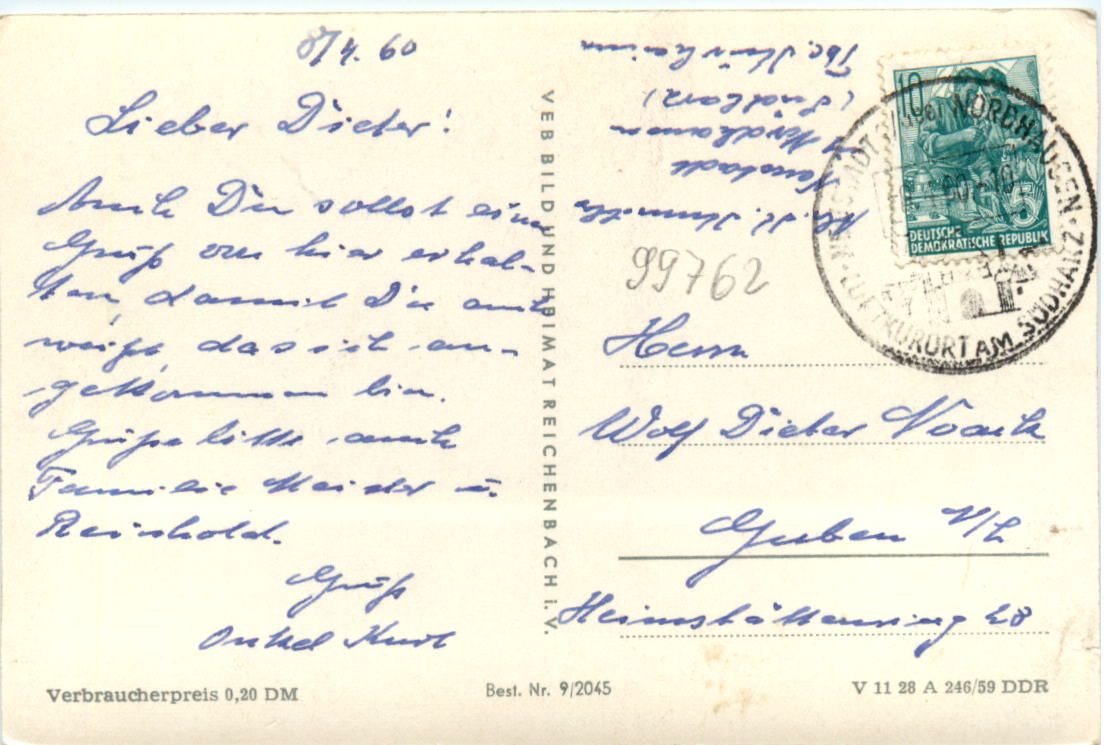 8/4. 60
Lieber Dieter!
Auch Du sollst einen
Gruß von hier erhal-
ten, damit Du auch
weißt, das ich an-
gekommen bin.
Grüße bitte auch
Familie u.
Reinhold.
Gruß
Onkel Kurt
VEB BILD UND HEIMAT REICHENBACH i. V.
Neustadt
(Südharz)
99762
10
5
DEUTSCHE
DEMOKRATISCHE REPUBLIK
NEUSTADT NORDHAUSEN
LUFTKURORT AM SÜDHARZ
Herrn
Wolf Dieter Noack
Guben N/L
Heimstättenring 28
Verbraucherpreis 0,20 DM
Best. Nr. 9/2045
V 11 28 A 246/59 DDR